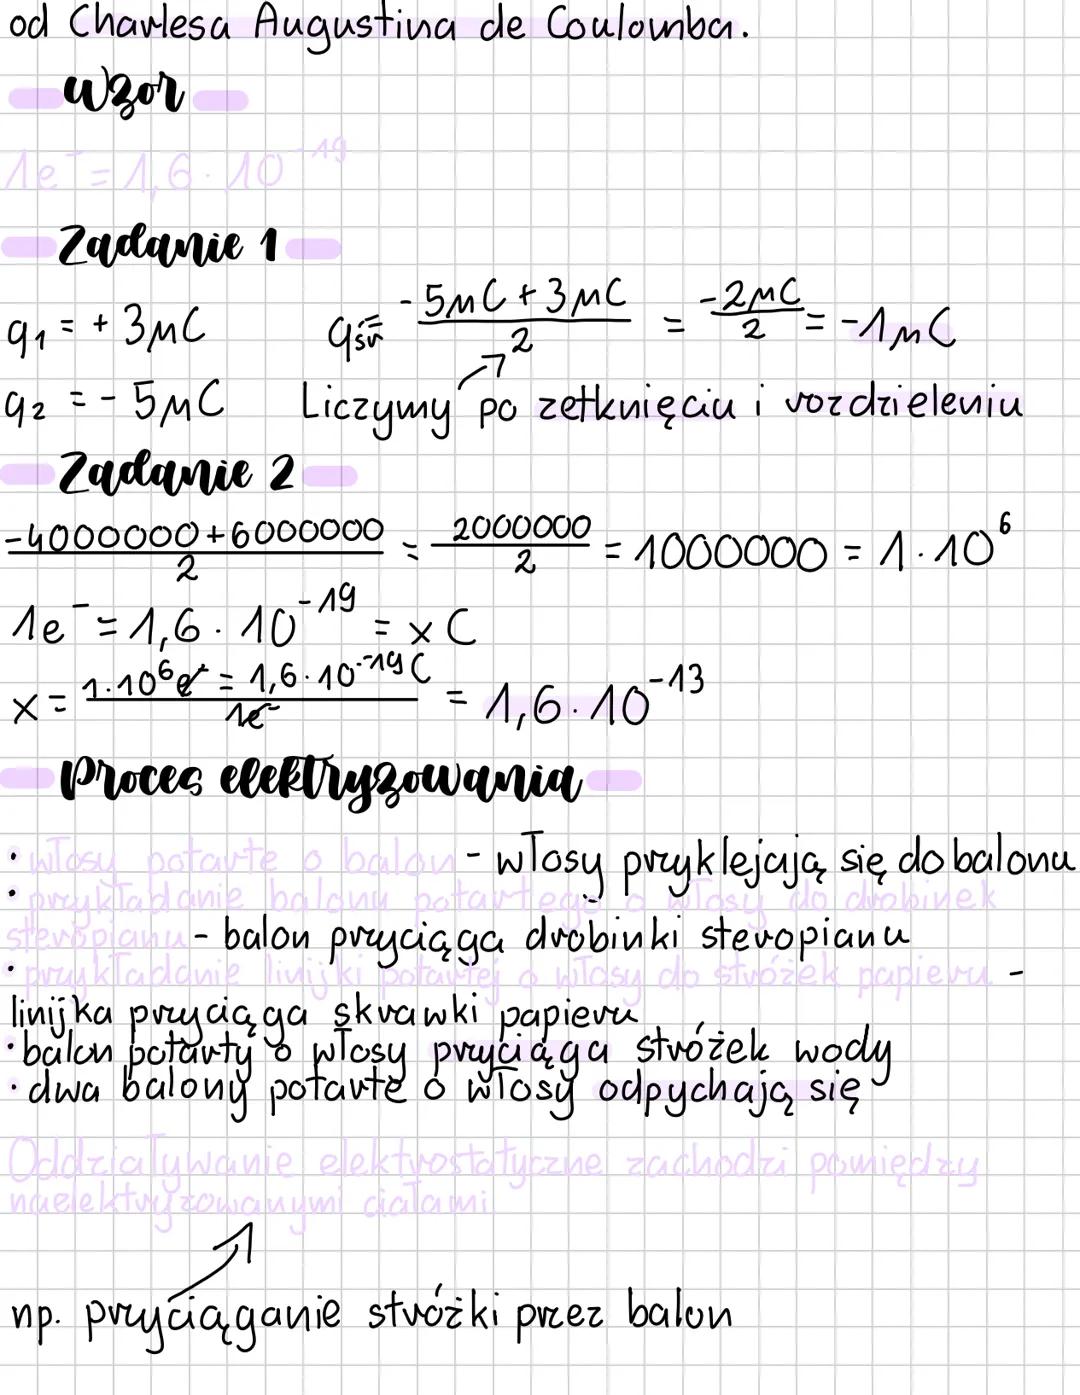 od Charlesa Augustina de Coulomba.
Wzór
1e⁻ = 1,6 · 10⁻¹⁹
Zadanie 1
q₁ = + 3μC qśr = (-5μC + 3μC)/2 = -2μC/2 = -1μC
q₂ = - 5μC Liczymy po zetknięciu i rozdzieleniu
Zadanie 2
(-4000000+6000000)/2 = 2000000/2 = 1000000 = 1 · 10⁶
1e⁻ = 1,6 · 10⁻¹⁹ = x C
x = (1·10⁶e⁻ = 1,6·10⁻¹⁹C)/1e⁻ = 1,6 · 10⁻¹³
Proces elektryzowania
• włosy potarte o balon - włosy przyklejają się do balonu
• przykładanie balonu potartego o włosy do drobinek
steropianu - balon przyciąga drobinki steropianu
• przykładanie linijki potartej o włosy do stróżek papieru -
linijka przyciąga skrawki papieru
• balon potarty o włosy przyciąga stróżek wody
• dwa balony potarte o włosy odpychają się
Oddziaływanie elektrostatyczne zachodzi pomiędzy
naelektryzowanymi ciałami
np. przyciąganie stróżki przez balon